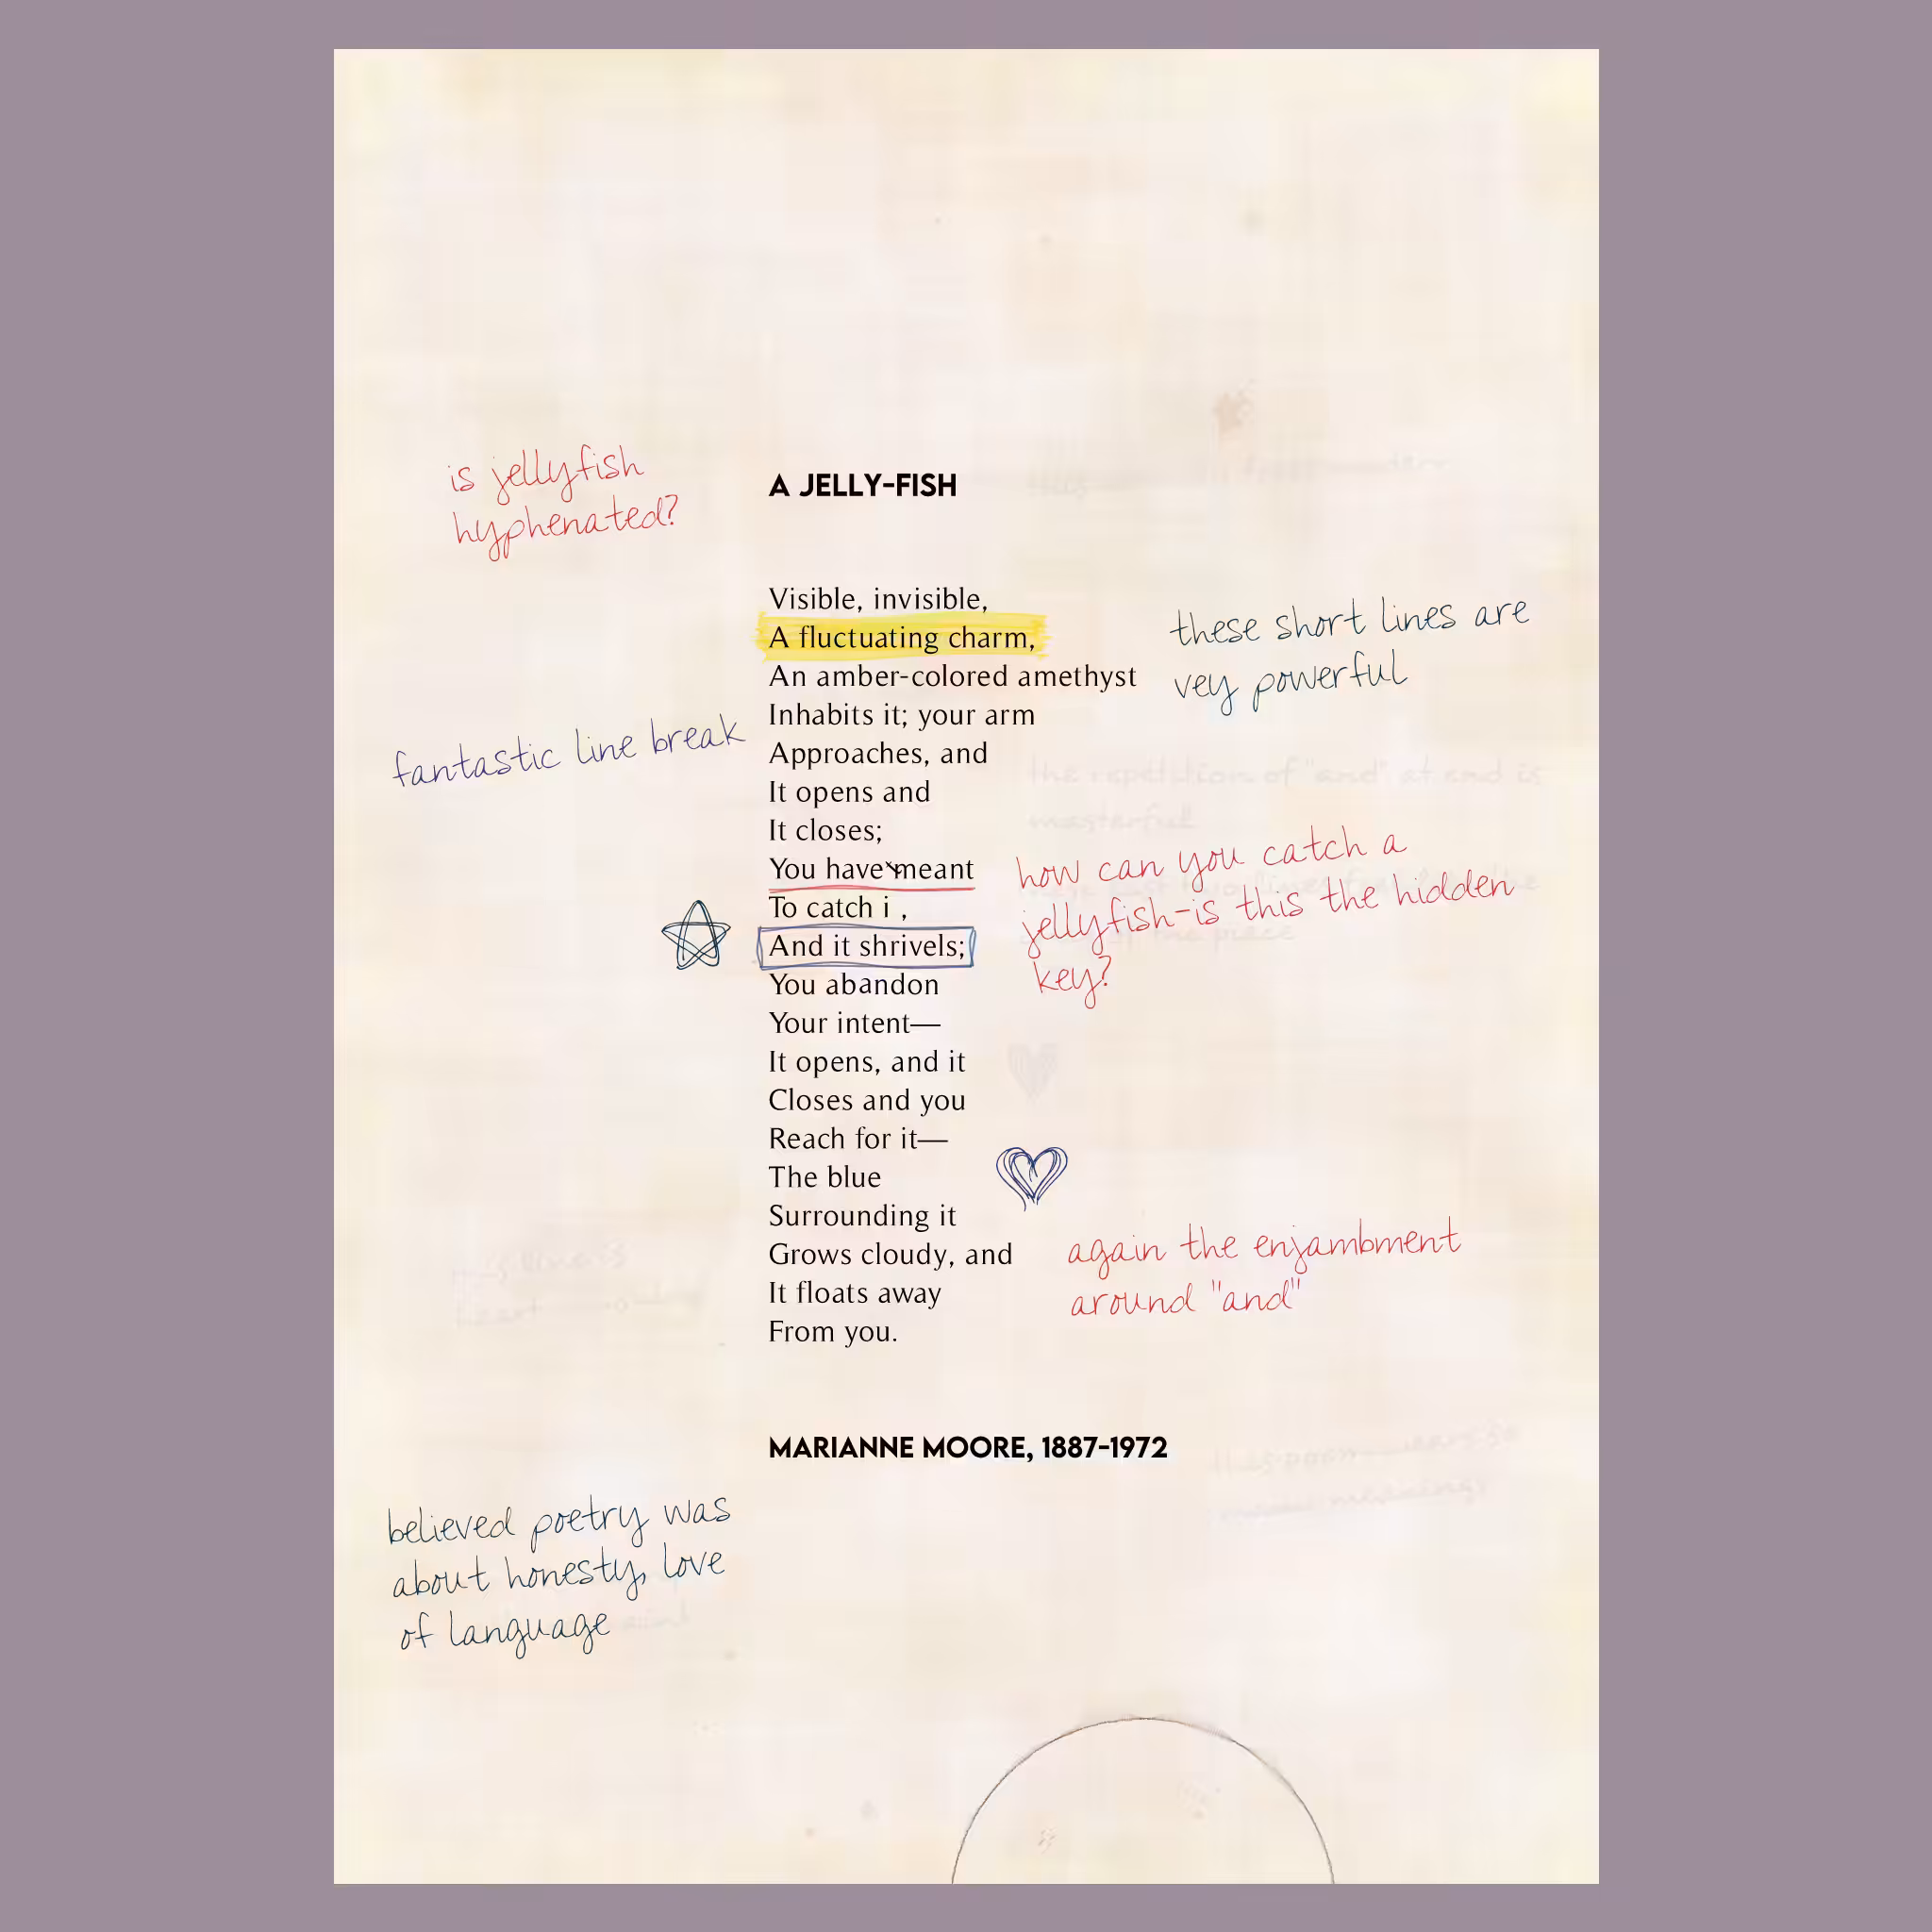 is jellyfish
hyphenated?
A JELLY-FISH
Visible, invisible,
A fluctuating charm,
An amber-colored amethyst
Inhabits it; your arm
Approaches, and
It opens and
It closes;
You have meant
To catch i ,
And it shrivels;
You abandon
Your intent—
It opens, and it
Closes and you
Reach for it—
The blue
Surrounding it
Grows cloudy, and
It floats away
From you.
these short lines are
vey powerful
fantastic line break
the repetition of "and" at end is
masterful
how can you catch a
jellyfish-is this the hidden
key?
again the enjambment
around "and"
MARIANNE MOORE, 1887-1972
believed poetry was
about honesty, love
of language